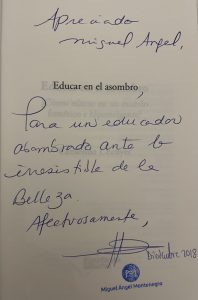 Apreciado
Miguel Angel,
Educar en el asombro
Para un educador
asombrado ante lo
irresistible de la
Belleza.
Afectuosamente,
Diciembre 2018
Miguel Angel Montenegro